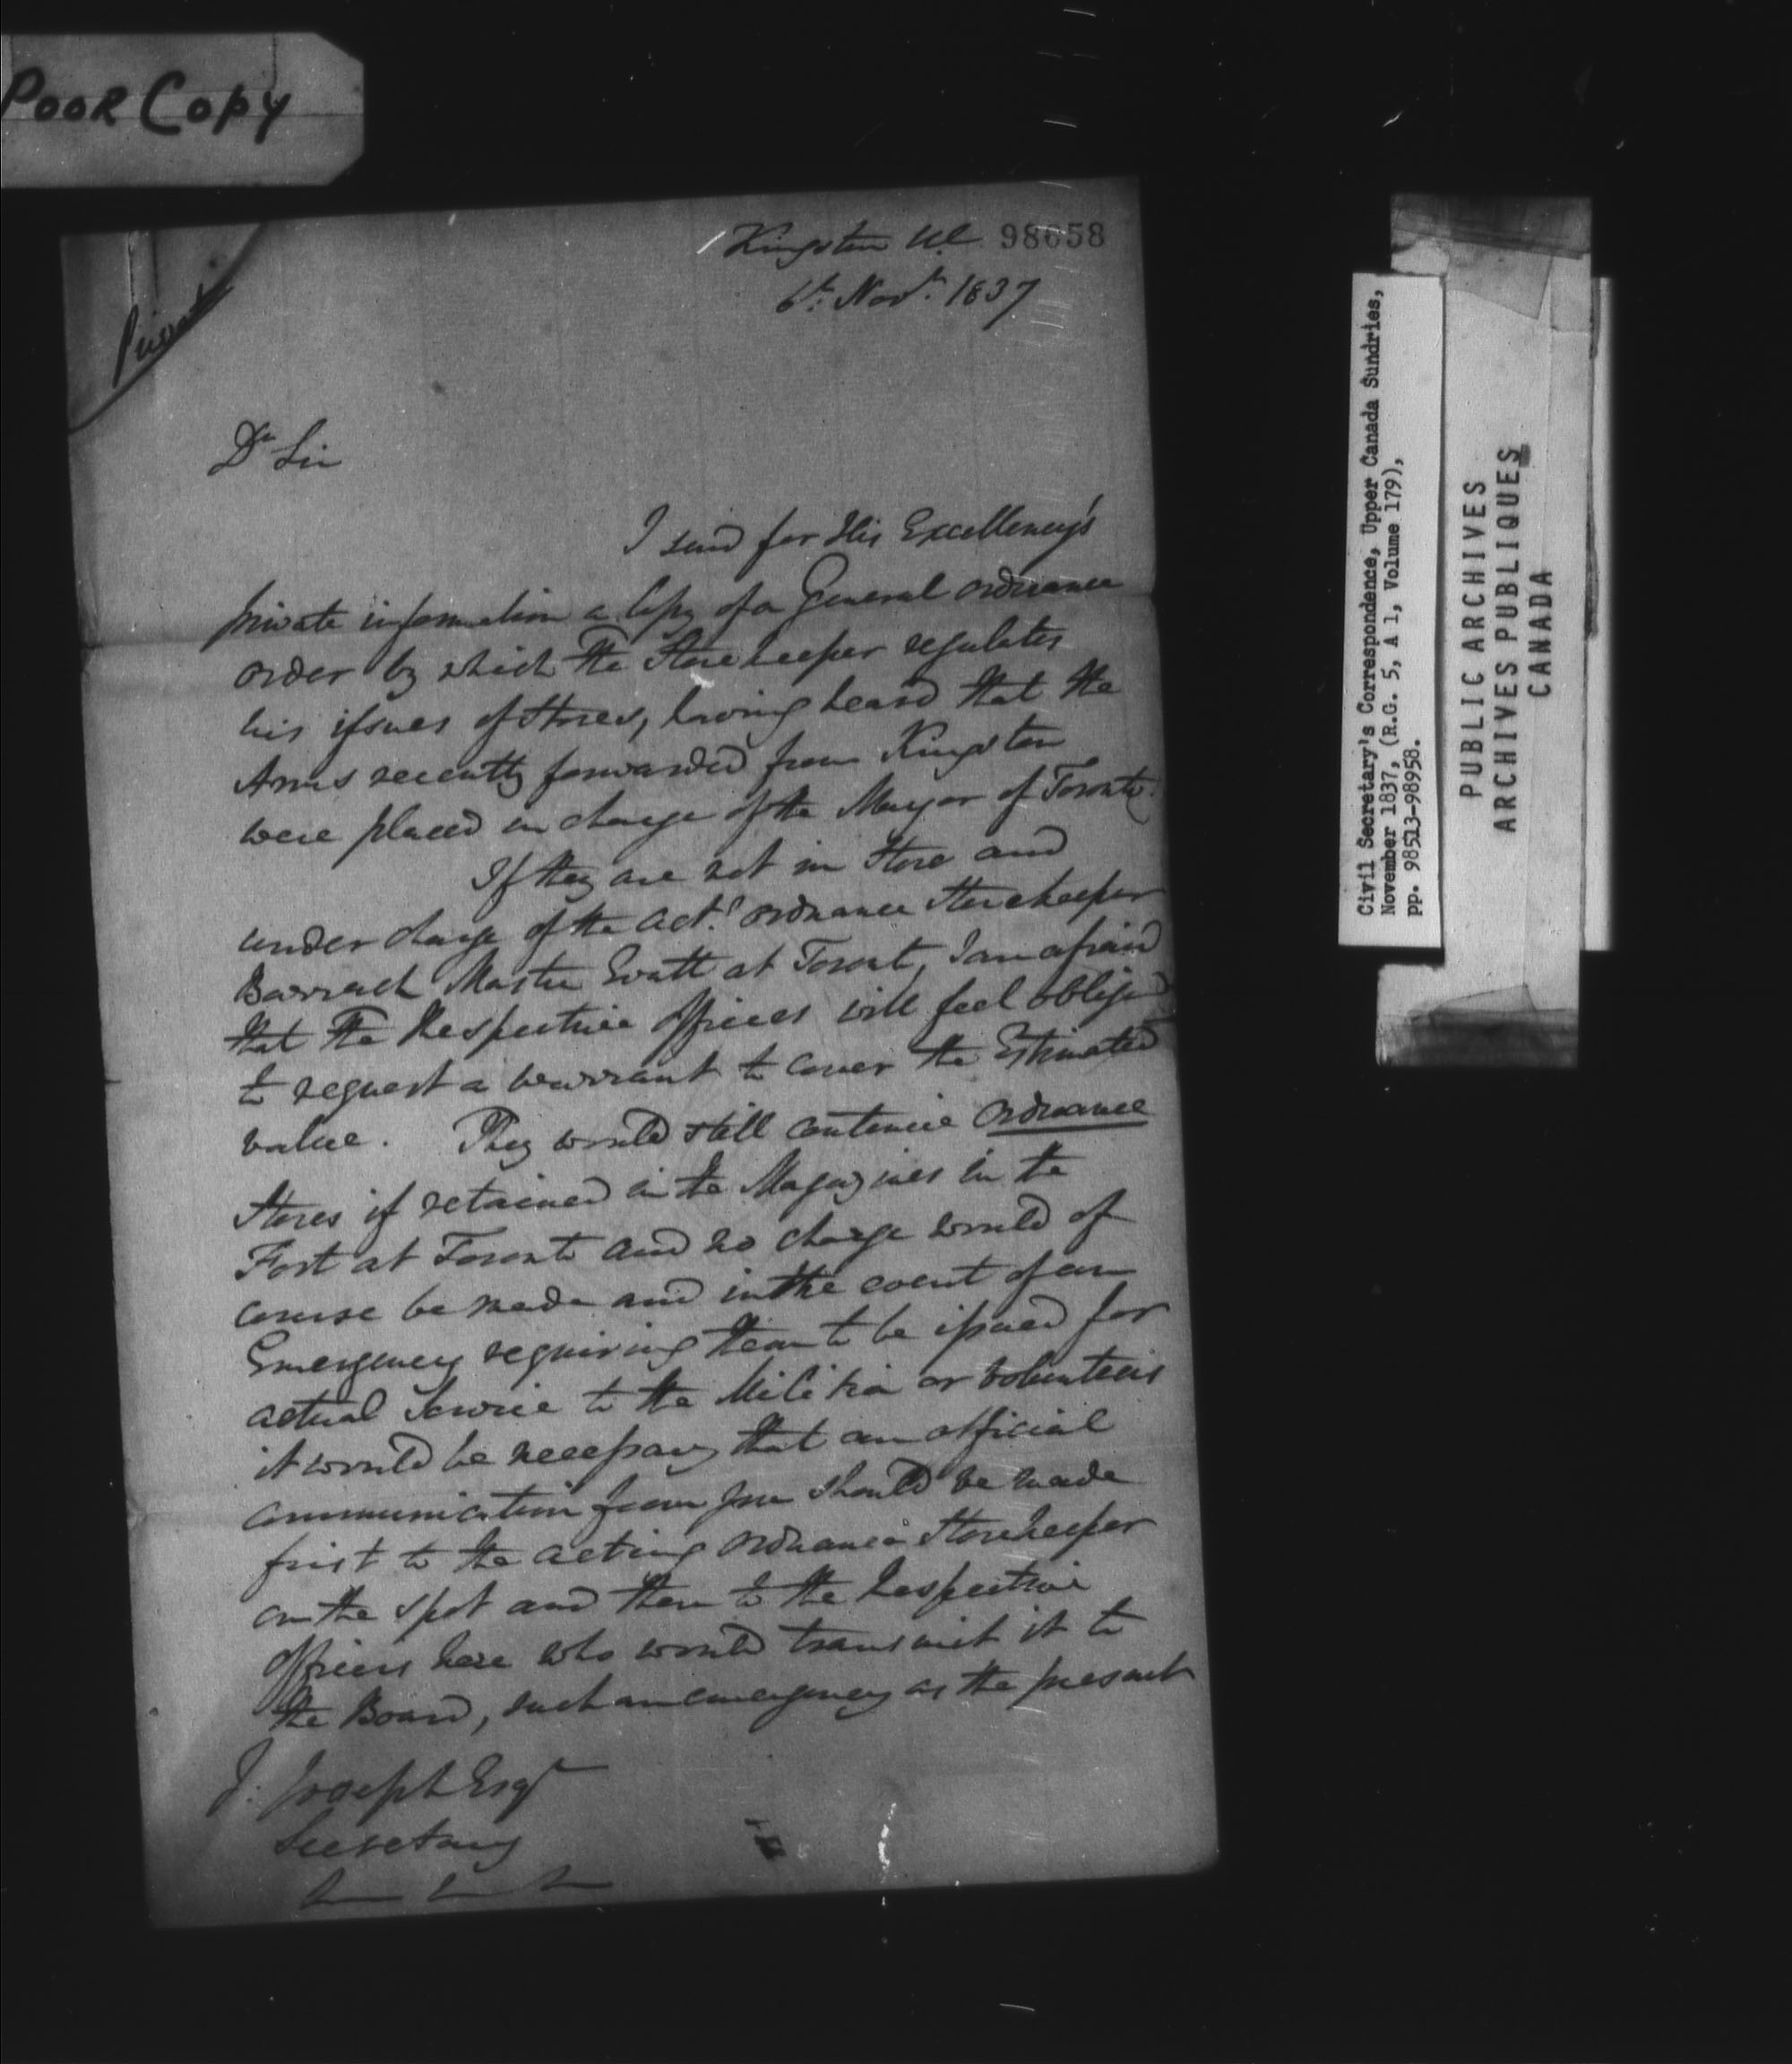 Poor Copy
Kingston UC. 98658
6th Novr. 1837
Private
Dr Sir
I send for His Excellency's
private information a Copy of a General Ordnance
order by which the Storekeeper regulates
his issues of Stores, having heard that the
Arms recently forwarded from Kingston
were placed in charge of the Mayor of Toronto.
If they are not in Store and
under charge of the Actg Ordnance Storekeeper
Barrack Master Evatt at Toronto, I am afraid
that the Respective Officers will feel obliged
to request a warrant to cover the Estimated
value. They would still continue Ordnance
Stores if retained in the Magazines in the
Fort at Toronto and no charge would of
course be made and in the event of an
Emergency requiring them to be issued for
actual Service to the Militia or Volunteers
it would be necessary that an official
communication from you should be made
first to the acting Ordnance Storekeeper
on the spot and then to the Respective
Officers here who would transmit it to
the Board, such an emergency as the present
J. Joseph Esqr
Secretary
Civil Secretary's Correspondence, Upper Canada Sundries,
November 1837, (R.G. 5, A 1, Volume 179),
pp. 98513-98958.
PUBLIC ARCHIVES
ARCHIVES PUBLIQUES
CANADA